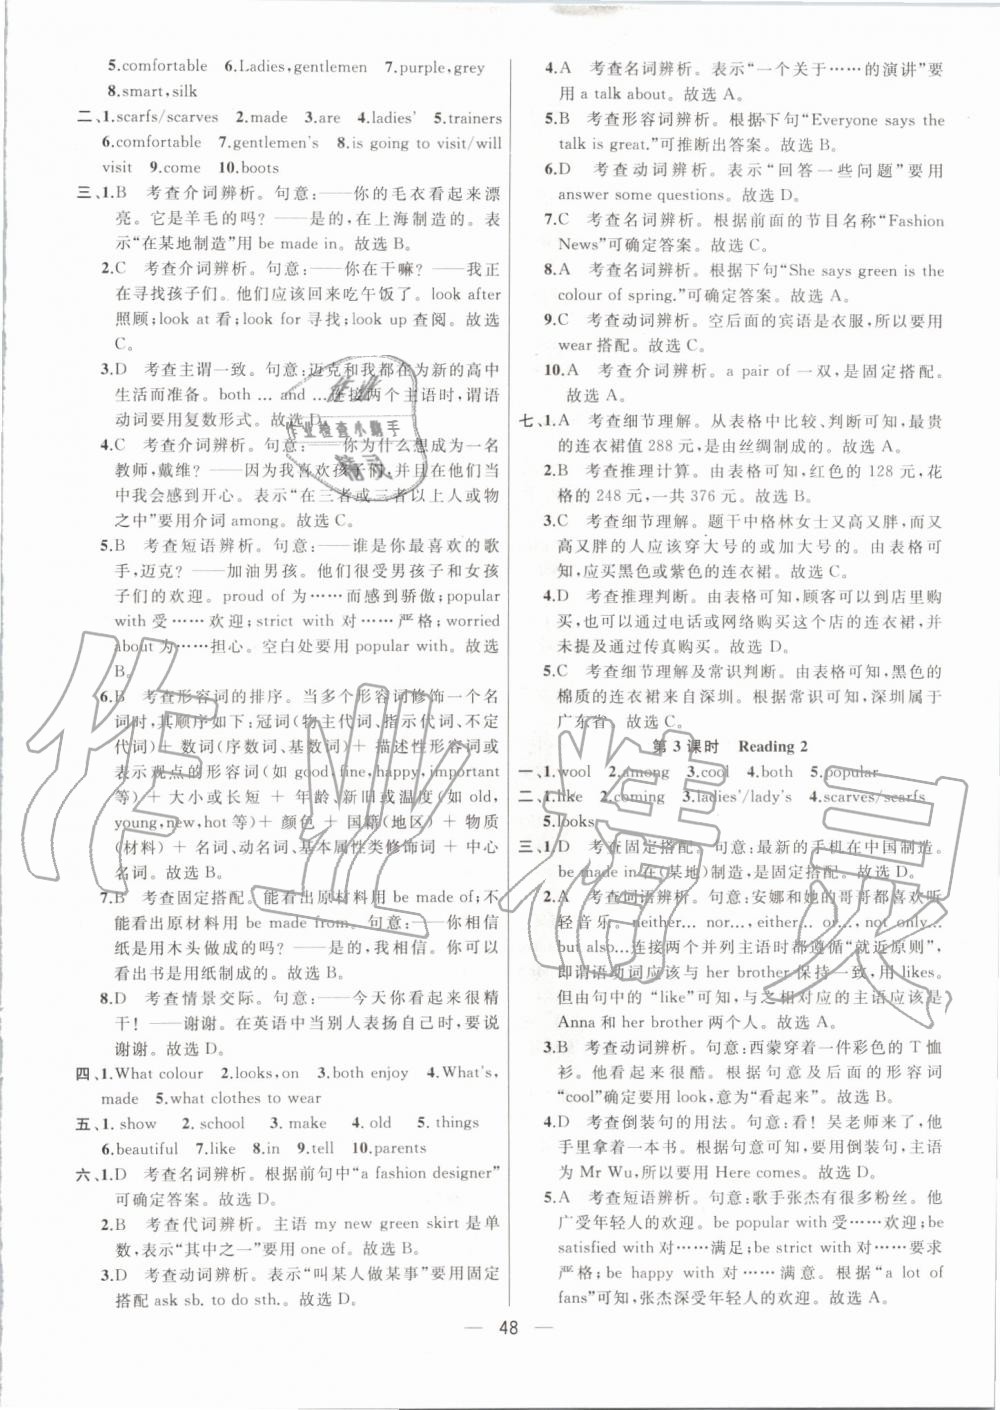 5.comfortable 6.Ladies,gentlemen 7.purple,grey
8.smart,silk
二、1.scarfs/scarves 2.made 3.are 4.ladies' 5.trainers
6.comfortable 7.gentlemen's 8.is going to visit/will
visit 9.come 10.boots
三、1.B 考查介词辨析。句意:——你的毛衣看起来漂
亮。它是羊毛的吗? ——是的,在上海制造的。表
示“在某地制造”用 be made in。故选 B。
2.C 考查介词辨析。句意:——你在干嘛? ——我正
在寻找孩子们。他们应该回来吃午饭了。look after
照顾;look at 看;look for 寻找;look up 查阅。故选
C。
3.D 考查主谓一致。句意:迈克和我都在为新的高中
生活而准备。both … and …连接两个主语时,谓语
动词要用复数形式。故选 D。
4.C 考查介词辨析。句意:——你为什么想成为一名
教师,戴维? ——因为我喜欢孩子们,并且在他们当
中我会感到开心。表示“在三者或三者以上人或物
之中”要用介词 among。故选 C。
5.B 考查短语辨析。句意:——谁是你最喜欢的歌
手,迈克? ——加油男孩。他们受男孩子和女孩
子们的欢迎。proud of 为……而感到骄傲;popular
with 受……欢迎;strict with 对……严格;worried
about 为……担心。空白处要用 popular with。故选
B。
6.B 考查形容词的排序。当多个形容词修饰一个名
词时,其顺序如下:冠词(物主代词、指示代词、不定
代词)＋数词(序数词、基数词)＋描述性形容词或
表示观点的形容词(如 good,fine,happy,important
等)＋大小或长短＋年龄、新旧或温度(如 old,
young,new,hot 等)＋颜色＋国籍(地区)＋物质
(材料)＋名词、动名词、基本属性类修饰词＋中心
名词。故选 B。
7.B 考查固定搭配。能看出原材料用 be made of;不
能看出原材料用 be made from。句意:——你相信
纸是用木头做成的吗? ——是的,我相信。你可以
看出书是用纸制成的。故选 B。
8.D 考查情景交际。句意:——今天你看起来很精
干! ——谢谢。在英语中当别人表扬自己时,要说
谢谢。故选 D。
四、1.What colour 2.looks,on 3.both enjoy 4.What's,
made 5.what clothes to wear
五、1.show 2.school 3.make 4.old 5.things
6.beautiful 7.like 8.in 9.tell 10.parents
六、1.D 考查名词辨析。根据前句中“a fashion designer”
可确定答案。故选 D。
2.B 考查代词辨析。主语 my new green skirt 是单
数,表示“其中之一”要用 one of。故选 B。
3.D 考查动词辨析。表示“叫某人做某事”要用固定
搭配 ask sb. to do sth.。故选 D。
4.A 考查名词辨析。表示“一个关于……的演讲”要
用 a talk about。故选 A。
5.B 考查形容词辨析。根据下句“Everyone says the
talk is great.”可推断出答案。故选 B。
6.D 考查动词辨析。表示“回答一些问题”要用
answer some questions。故选 D。
7.C 考查名词辨析。根据前面的节目名称“Fashion
News”可确定答案。故选 C。
8.A 考查名词辨析。根据下句“She says green is the
colour of spring.”可确定答案。故选 A。
9.C 考查动词辨析。空后面的宾语是衣服,所以要用
wear 搭配。故选 C。
10.A 考查介词辨析。a pair of 一双,是固定搭配。
故选 A。
七、1.A 考查细节理解。从表格中比较、判断可知,最贵
的连衣裙值 288 元,是由丝绸制成的。故选 A。
2.B 考查推理计算。由表格可知,红色的 128 元,花
格的 248 元,一共 376 元。故选 B。
3.C 考查细节理解。题干中格林女士又高又胖,而又
高又胖的人应该穿大号的或加大号的。由表格可
知,应买黑色或紫色的连衣裙。故选 C。
4.D 考查推理判断。由表格可知,顾客可以到店里购
买,也可以通过电话或网络购买这个店的连衣裙,并
未提及通过传真购买。故选 D。
5.C 考查细节理解及常识判断。由表格可知,黑色的
棉质的连衣裙来自深圳。根据常识可知,深圳属于
广东省。故选 C。
第 3 课时 Reading 2
一、1.wool 2.among 3.cool 4.both 5.popular
二、1.like 2.coming 3.ladies'/lady's 4.scarves/scarfs
5.looks
三、1.D 考查固定搭配。句意:最新的手机在中国制造。
be made in 在(某地)制造,是固定搭配。故选 D。
2.A 考查词语辨析。句意:安娜和她的哥哥都喜欢听
轻音乐。neither… nor…, either… or…, not only…
but also…连接两个并列主语时都遵循“就近原则”,
即谓语动词应该与 her brother 保持一致,用 likes。
但由句中的 “like”可知,与之相对应的主语应该是
Anna 和 her brother 两个人。故选 A。
3.B 考查动词辨析。句意:西蒙穿着一件彩色的 T 恤
衫。他看起来很酷。根据句意及后面的形容词
“cool”确定要用 look,意为“看起来”。故选 B。
4.D 考查倒装句的用法。句意:看! 吴老师来了,他
手里拿着一本书。根据句意可知,要用倒装句,主语
为 Mr Wu,所以要用 Here comes。故选 D。
5.A 考查短语辨析。句意:歌手张杰有很多粉丝。他
广受年轻人的欢迎。be popular with 受……欢迎;be
satisfied with 对……满足;be strict with 对……要求
严格;be happy with 对……满意。根据“a lot of
fans”可知,张杰深受年轻人的欢迎。故选 A。
— 48 —
作业
作业检查小助手
精灵
作业精灵